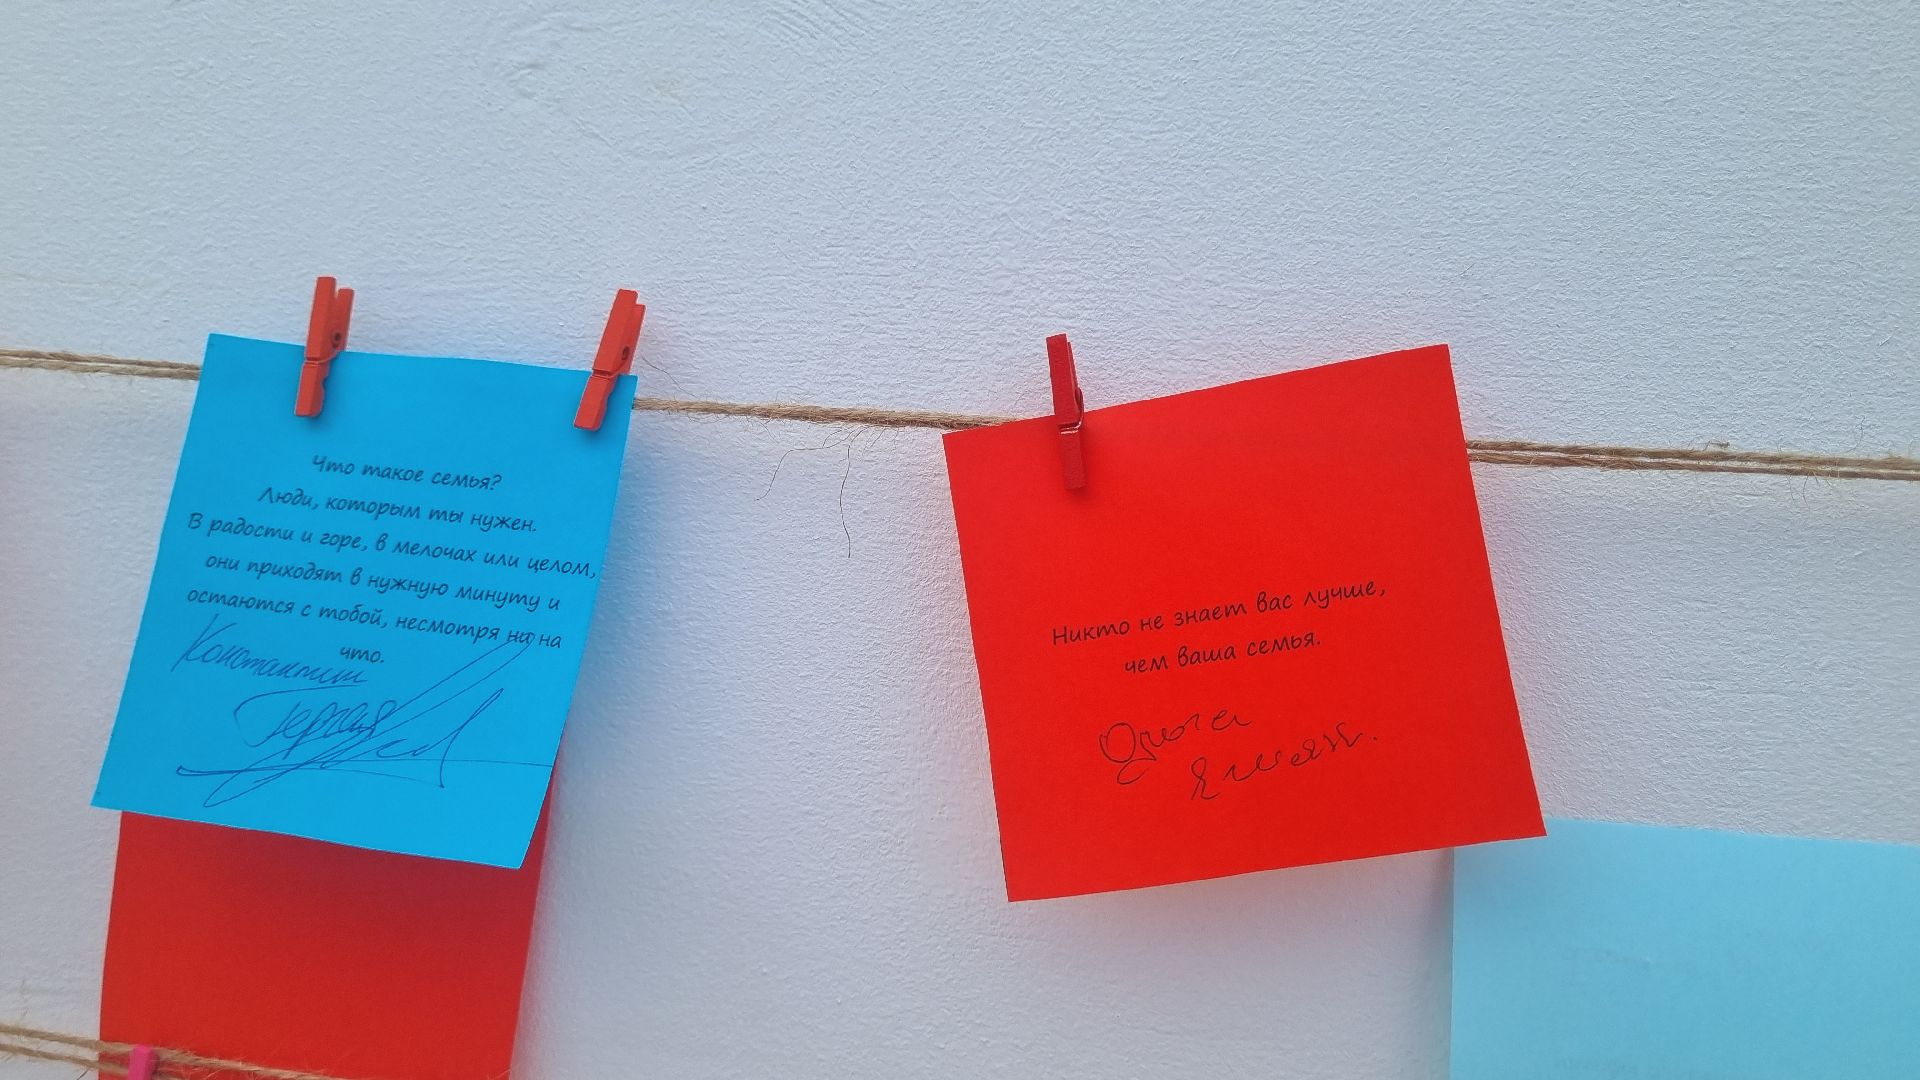 Что такое семья?
Люди, которым ты нужен.
В радости и горе, в мелочах или целом,
они приходят в нужную минуту и
остаются с тобой, несмотря ни на
что.
Константин
Никто не знает вас лучше,
чем ваша семья.